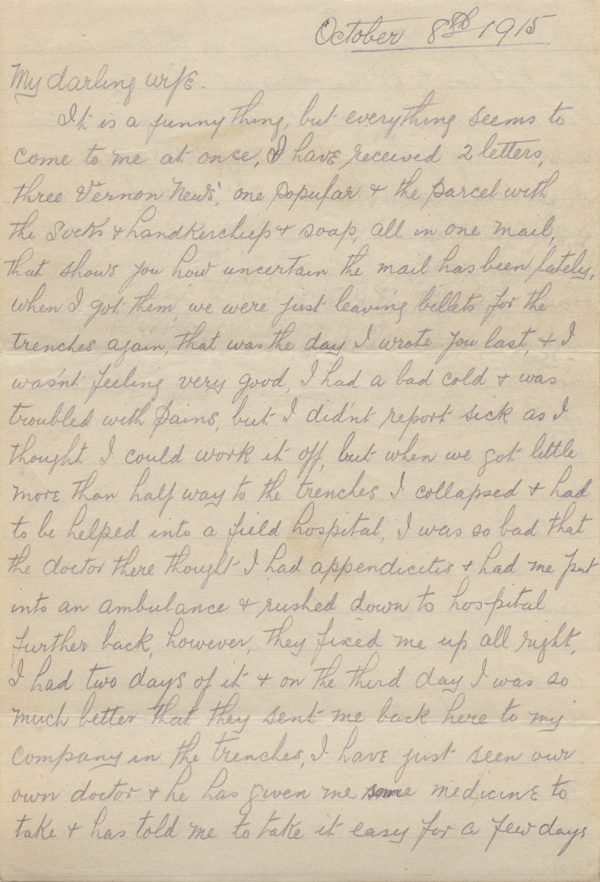 October 8th 1915
My darling wife.
It is a funny thing, but everything seems to
come to me at once, I have received 2 letters,
three Vernon News', one Popular & the parcel with
the Socks & handkerchiefs & soap, all in one mail,
that shows you how uncertain the mail has been lately,
when I got them, we were just leaving billets for the
trenches again, that was the day I wrote you last, & I
wasn't feeling very good, I had a bad cold & was
troubled with pains, but I didn't report sick as I
thought I could work it off, but when we got little
more than half way to the trenches I collapsed & had
to be helped into a field hospital, I was so bad that
the doctor there thought I had appendicitis & had me put
into an ambulance & rushed down to hospital
further back, however, they fixed me up all right,
I had two days of it & on the third day I was so
much better that they sent me back here to my
company in the trenches, I have just seen our
own doctor & he has given me some medicine to
take & has told me to take it easy for a few days